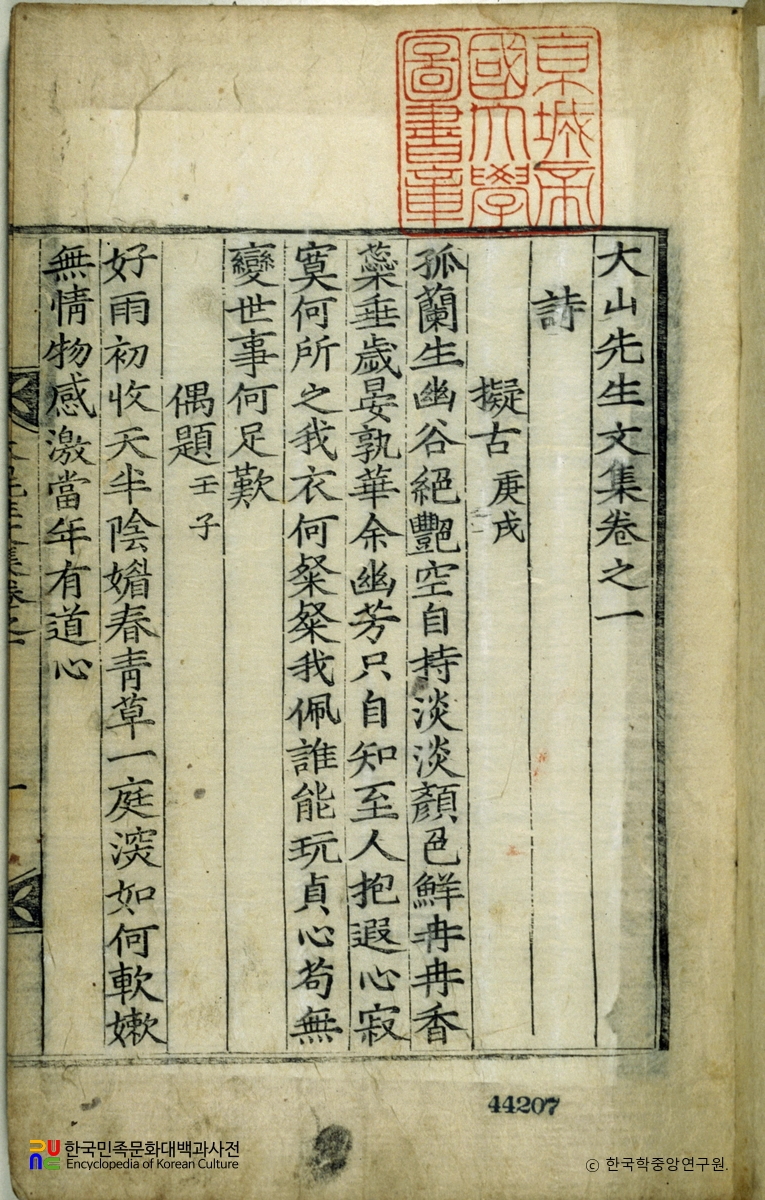 京城帝
國大學
圖書章
大山先生文集卷之一
詩
擬古 庚戌
孤蘭生幽谷絕艷空自持淡淡顏色鮮冉冉香
蘂垂歲晏孰華余幽芳只自知至人抱遐心寂
寞何所之我衣何粲粲我佩誰能玩貞心苟無
變世事何足歎
偶題 壬子
好雨初收天半陰媚春靑草一庭深如何軟嫩
無情物感激當年有道心
大山先生文集卷之一
一
44207
한국민족문화대백과사전
Encyclopedia of Korean Culture
ⓒ 한국학중앙연구원.